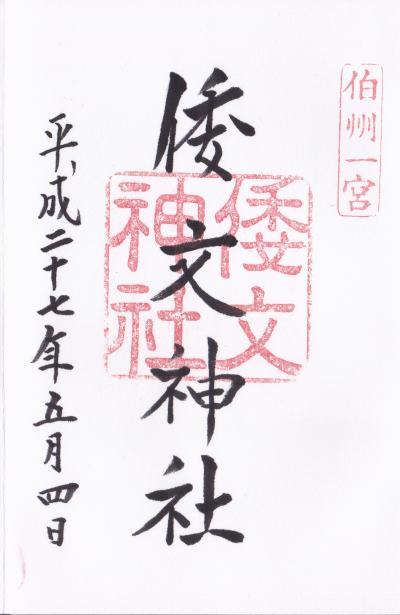 伯州一宮
倭文神社
倭文
神社
平成二十七年五月四日